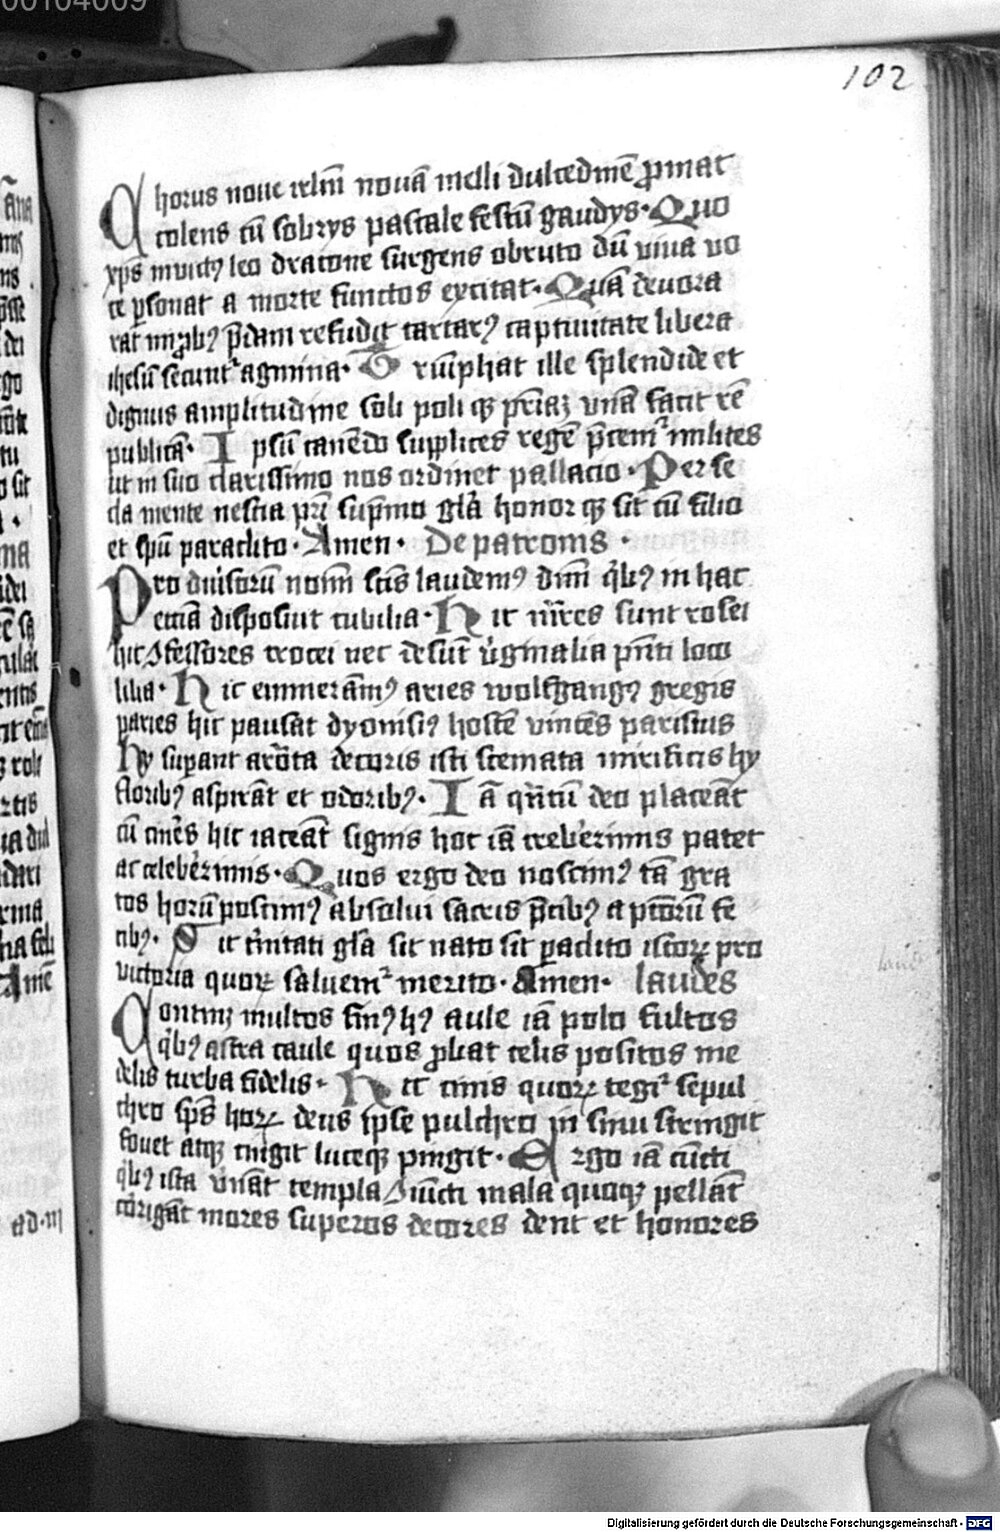 00104009
102
Chorus noue ierlm̄ nouā melli dulcedinē ꝓmat
colens cū sobrys pascale festū gaudys · Quo
xp̄s inuictꝰ leo dracone surgens obruto dū viua vo
ce ꝑsonat a morte functos excitat · Quā deuora
rat imꝓbꝰ p̄dam refudit tartarꝰ captiuitate libera
ihesū secunt᷑ agmina · Triūphat ille splendide et
dignus amplitudine soli poli qꝫ pr̄iaꝫ vnā facit rē
publicā · Ipsū canendo supplices regē p̄cem᷑ milites
ut in suo clarissimo nos ordinet pallacio · Per se
cla mente nescia pr̄i sup̄mo gl̄a honor qꝫ sit cū filio
et sp̄u paraclito · Amen · De patronis ·
Pro diuisorū noīm sc̄is laudemꝰ dn̄m q̇bꝰ in hac
etiā disposiuit cubilia · Hic mr̄es sunt rosei
hic ꝯfessores crocei nec desūt v̇ginalia pn̄ti loco
lilia · Hic emmerāmꝰ aries wolfgangꝰ gregis
paries hic pausat dyonisiꝰ hostē vincēs parisius
hy supant arōta decoris isti stemata mirificis hy
floribꝰ aspirāt et odoribꝰ · Iā qn̄tū deo placeāt
cū om̄es hic iaceāt signis hoc iā creb̓erimis patet
ac celeb̓erimis · Quos ergo deo noscimꝰ tā gra
tos horū poscimꝰ absolui sacris p̄cibꝰ a pc̄orū fe
cibꝰ · Sit tn̄itati gl̄a sit nato sit paclito istoꝝ pro
victoria quoꝝ saluem᷑ merito · Amen · laudes
Continꝫ multos finꝰ hꝰ aule iā polo fultos
q̇bꝰ astra caule quos ꝓbat celis positos me
delis turba fidelis · Hic cinis quoꝝ tegit᷑ sepul
chro sp̄s hoꝝ deus ipse pulchro in sinu stringit
fouet atqꝫ cingit luceqꝫ pingit · Ergo iā cūcti
q̇bꝰ ista v̇sāt templa ꝯiūcti mala quoqꝫ pellāt
corigāt mores superos decores dent et honores
Digitalisierung gefördert durch die Deutsche Forschungsgemeinschaft - DFG